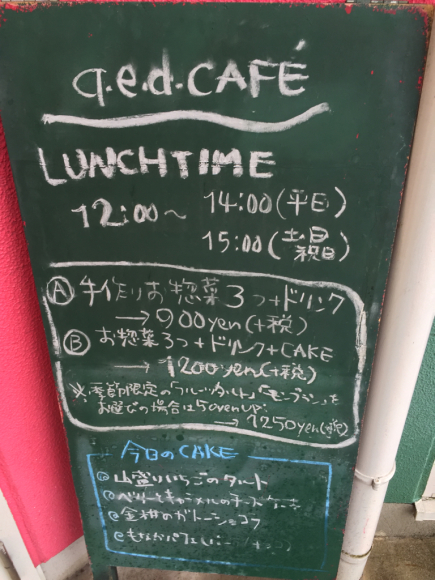 q.e.d. CAFÉ
LUNCHTIME
12:00〜 14:00(平日)
15:00(土日祝日)
Ⓐ 手作りお惣菜3つ+ドリンク
→900yen(+税)
Ⓑ お惣菜3つ+ドリンク+CAKE
→1200yen(+税)
※季節限定の「フルーツタルト」「モンブラン」を
お選びの場合は50yenup.
→1250yen(+税)
今日のCAKE
@山盛りいちごのタルト
@ベリーとキャラメルのチーズケーキ
@金柑のガトーショコラ